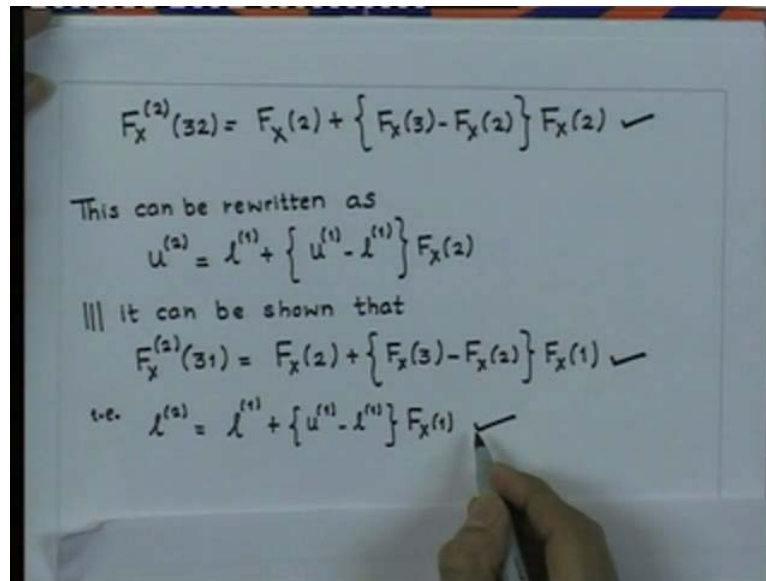 Fₓ⁽²⁾(32) = Fₓ(2) + {Fₓ(3) - Fₓ(2)} Fₓ(2) ✓
This can be rewritten as
u⁽²⁾ = l⁽¹⁾ + {u⁽¹⁾ - l⁽¹⁾} Fₓ(2)
||| it can be shown that
Fₓ⁽²⁾(31) = Fₓ(2) + {Fₓ(3) - Fₓ(2)} Fₓ(1) ✓
i.e. l⁽²⁾ = l⁽¹⁾ + {u⁽¹⁾ - l⁽¹⁾} Fₓ(1) ✓